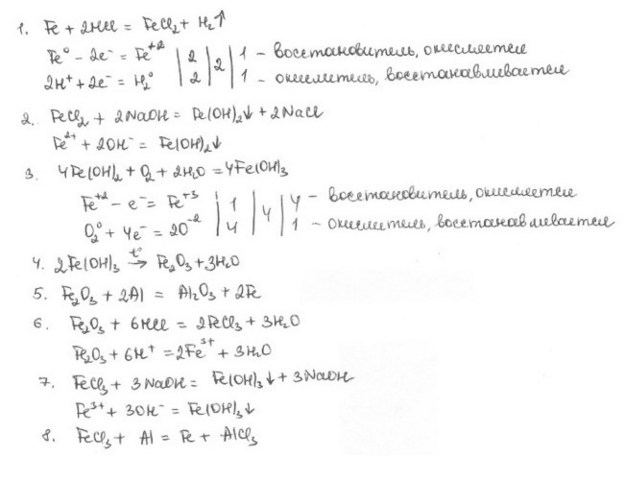 1. Fe + 2HCl = FeCl₂ + H₂↑
Fe⁰ - 2e⁻ = Fe⁺² | 2 | 2 | 1 - восстановитель, окисляется
2H⁺ + 2e⁻ = H₂⁰ | 2 | | 1 - окислитель, восстанавливается
2. FeCl₂ + 2NaOH = Fe(OH)₂↓ + 2NaCl
Fe²⁺ + 2OH⁻ = Fe(OH)₂↓
3. 4Fe(OH)₂ + O₂ + 2H₂O = 4Fe(OH)₃
Fe⁺² - e⁻ = Fe⁺³ | 1 | 4 | 4 - восстановитель, окисляется
O₂⁰ + 4e⁻ = 2O⁻² | 4 | | 1 - окислитель, восстанавливается
4. 2Fe(OH)₃ t°→ Fe₂O₃ + 3H₂O
5. Fe₂O₃ + 2Al = Al₂O₃ + 2Fe
6. Fe₂O₃ + 6HCl = 2FeCl₃ + 3H₂O
Fe₂O₃ + 6H⁺ = 2Fe³⁺ + 3H₂O
7. FeCl₃ + 3NaOH = Fe(OH)₃↓ + 3NaOH
Fe³⁺ + 3OH⁻ = Fe(OH)₃↓
8. FeCl₃ + Al = Fe + AlCl₃